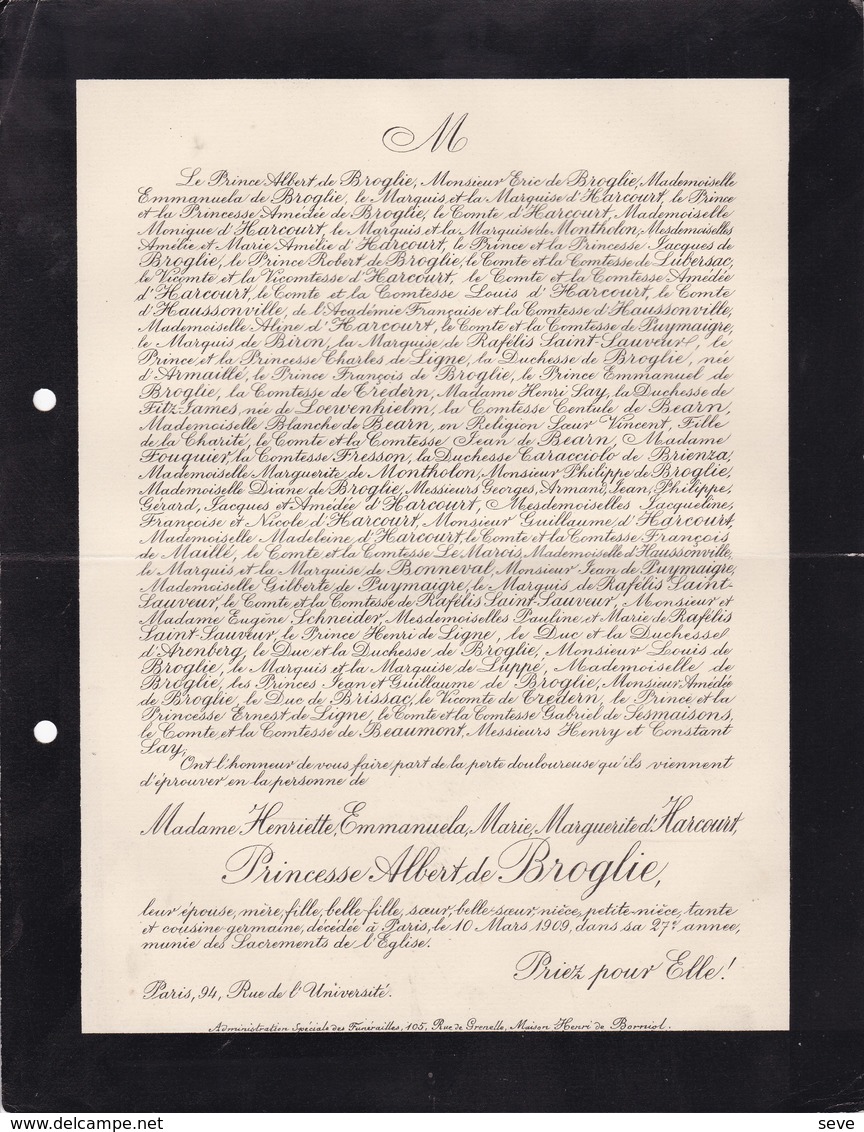 M
Le Prince Albert de Broglie, Monsieur Eric de Broglie, Mademoiselle
Emmanuela de Broglie, le Marquis et la Marquise d'Harcourt, le Prince
et la Princesse Amédée de Broglie, le Comte d'Harcourt, Mademoiselle
Monique d'Harcourt, le Marquis et la Marquise de Montholon, Mesdemoiselles
Amélie et Marie Amélie d'Harcourt, le Prince et la Princesse Jacques de
Broglie, le Prince Robert de Broglie, le Comte et la Comtesse de Lubersac,
le Vicomte et la Vicomtesse d'Harcourt, le Comte et la Comtesse Amédée
d'Harcourt, le Comte et la Comtesse Louis d'Harcourt, le Comte
d'Haussonville, de l'Académie Française et la Comtesse d'Haussonville,
Mademoiselle Aline d'Harcourt, le Comte et la Comtesse de Puymaigre,
le Marquis de Biron, la Marquise de Rafélis Saint-Sauveur, le
Prince et la Princesse Charles de Ligne, la Duchesse de Broglie, née
d'Armaillé, le Prince François de Broglie, le Prince Emmanuel de
Broglie, la Comtesse de Trédern, Madame Henri Say, la Duchesse de
Fitz-James, née de Loewenhielm, la Comtesse Centule de Bearn,
Mademoiselle Blanche de Bearn, en Religion Sœur Vincent, Fille
de la Charité, le Comte et la Comtesse Jean de Bearn, Madame
Fouquier, la Comtesse Fresson, la Duchesse Caracciolo de Brienza,
Mademoiselle Marguerite de Montholon, Monsieur Philippe de Broglie,
Mademoiselle Diane de Broglie, Messieurs Georges, Armand, Jean, Philippe,
Gérard, Jacques et Amédée d'Harcourt, Mesdemoiselles Jacqueline,
Françoise et Nicole d'Harcourt, Monsieur Guillaume d'Harcourt,
Mademoiselle Madeleine d'Harcourt, le Comte et la Comtesse François
de Maillé, le Comte et la Comtesse Le Marois, Mademoiselle d'Haussonville,
le Marquis et la Marquise de Bonneval, Monsieur Jean de Puymaigre,
Mademoiselle Gilberte de Puymaigre, le Marquis de Rafélis Saint-
Sauveur, le Comte et la Comtesse de Rafélis Saint-Sauveur, Monsieur et
Madame Eugène Schneider, Mesdemoiselles Pauline et Marie de Rafélis
Saint-Sauveur, le Prince Henri de Ligne, le Duc et la Duchesse
d'Arenberg, le Duc et la Duchesse de Broglie, Monsieur Louis de
Broglie, le Marquis et la Marquise de Luppé, Mademoiselle de
Broglie, les Princes Jean et Guillaume de Broglie, Monsieur Amédée
de Broglie, le Duc de Brissac, le Vicomte de Trédern, le Prince et la
Princesse Ernest de Ligne, le Comte et la Comtesse Gabriel de Sesmaisons,
le Comte et la Comtesse de Beaumont, Messieurs Henry et Constant
Say,
Ont l'honneur de vous faire part de la perte douloureuse qu'ils viennent
d'éprouver en la personne de
Madame Henriette, Emmanuela, Marie, Marguerite d'Harcourt,
Princesse Albert de Broglie,
leur épouse, mère, fille, belle-fille, sœur, belle-sœur, nièce, petite-nièce, tante
et cousine germaine, décédée à Paris, le 10 Mars 1909, dans sa 27e année,
munie des Sacrements de l'Eglise.
Priez pour Elle!
Paris, 94, Rue de l'Université.
Administration Spéciale des Funérailles, 105, Rue de Grenelle, Maison Henri de Borniol.
delcampe.net
seve